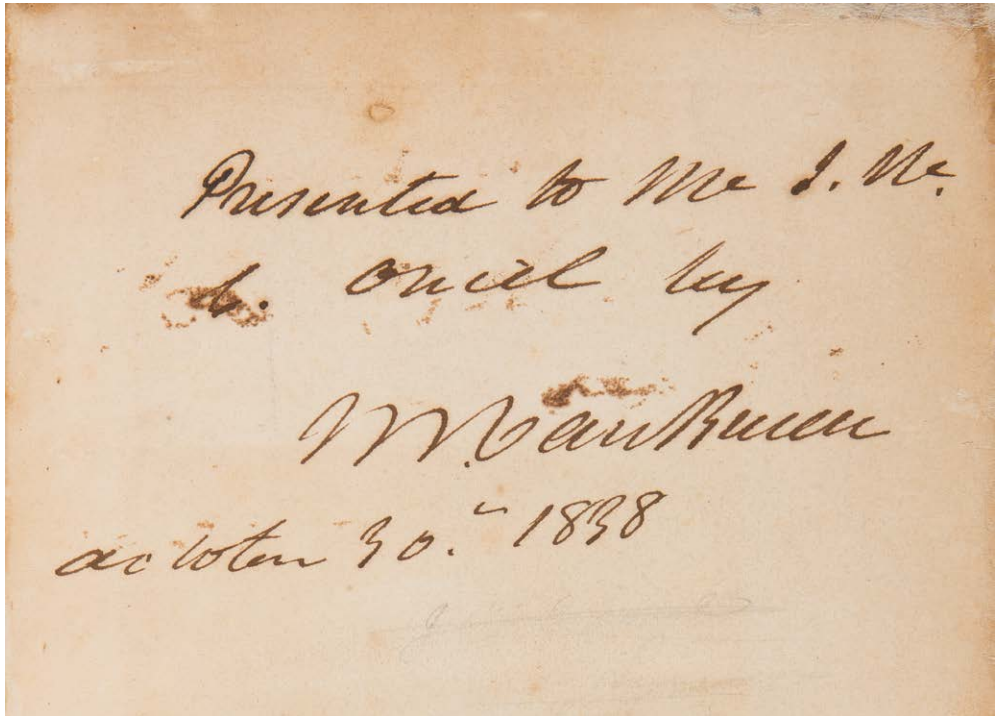 Presented to Mr J. W.
C. Oniel by
M. Van Buren
October 30. 1838